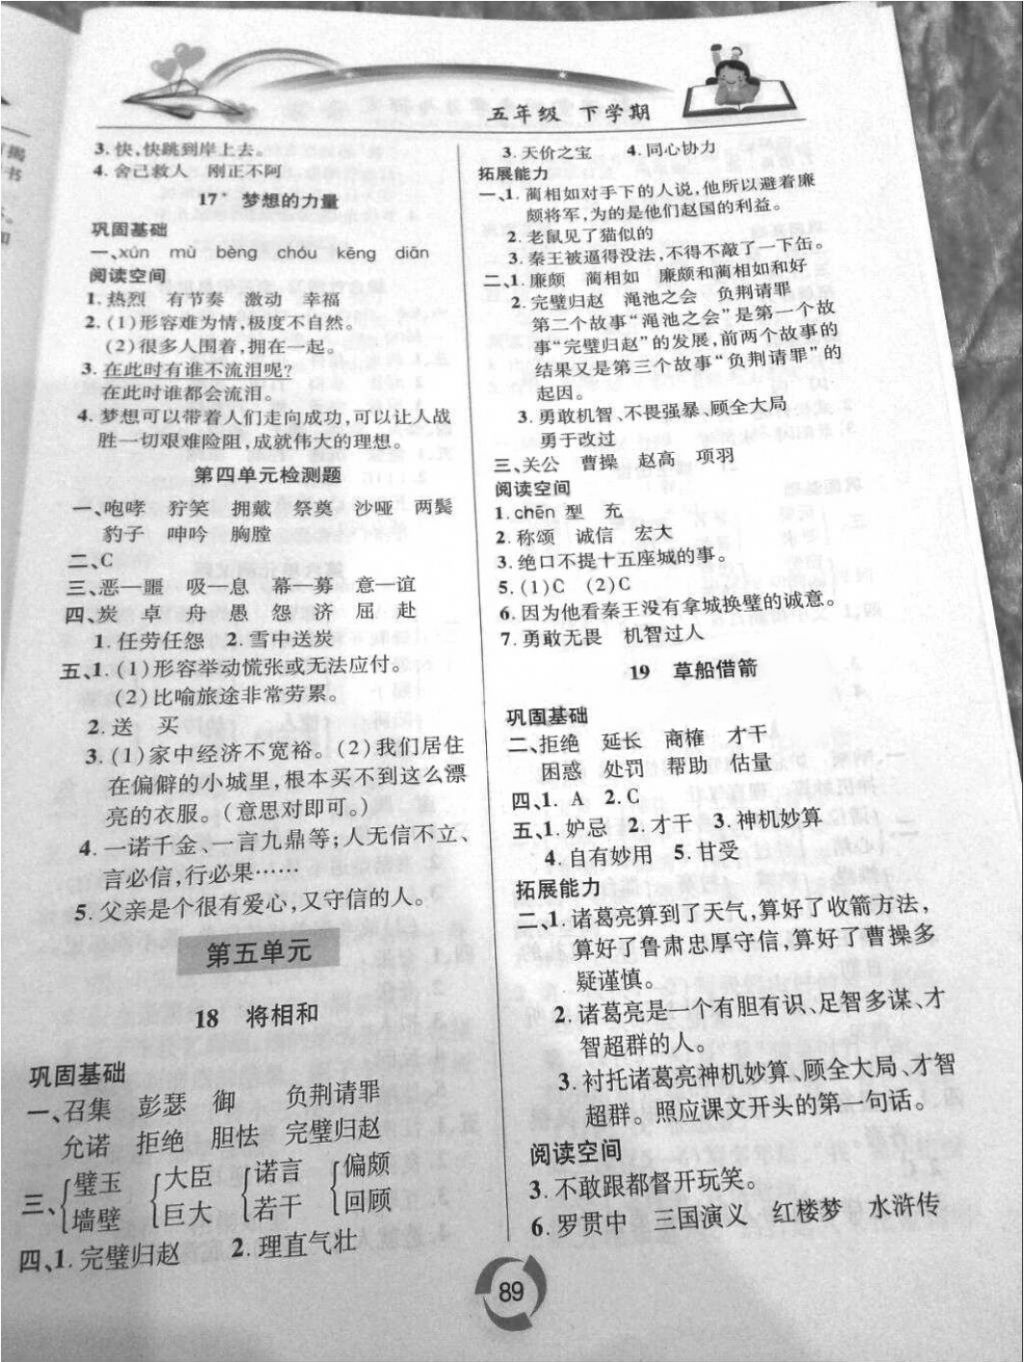 五年级 下学期
3. 快,快跳到岸上去。
4. 舍己救人 刚正不阿
17* 梦想的力量
巩固基础
一、xún mù bèng chóu kēng diān
阅读空间
1. 热烈 有节奏 激动 幸福
2. (1)形容难为情,极度不自然。
(2)很多人围着,拥在一起。
3. 在此时有谁不流泪呢?
在此时谁都会流泪。
4. 梦想可以带着人们走向成功,可以让人战
胜一切艰难险阻,成就伟大的理想。
第四单元检测题
一、咆哮 狞笑 拥戴 祭奠 沙哑 两鬓
豹子 呻吟 胸膛
二、C
三、恶—噩 吸—息 幕—募 意—谊
四、炭 卓 舟 愚 怨 济 屈 赴
1. 任劳任怨 2. 雪中送炭
五、1. (1)形容举动慌张或无法应付。
(2)比喻旅途非常劳累。
2. 送 买
3. (1)家中经济不宽裕。(2)我们居住
在偏僻的小城里,根本买不到这么漂
亮的衣服。(意思对即可。)
4. 一诺千金、一言九鼎等;人无信不立、
言必信,行必果……
5. 父亲是个很有爱心,又守信的人。
第五单元
18 将相和
巩固基础
一、召集 彭瑟 御 负荆请罪
允诺 拒绝 胆怯 完璧归赵
三、{璧玉 {大臣 {诺言 {偏颇
墙壁 巨大 若干 回顾
四、1. 完璧归赵 2. 理直气壮
3. 天价之宝 4. 同心协力
拓展能力
一、1. 蔺相如对手下的人说,他所以避着廉
颇将军,为的是他们赵国的利益。
2. 老鼠见了猫似的
3. 秦王被逼得没法,不得不敲了一下缶。
二、1. 廉颇 蔺相如 廉颇和蔺相如和好
2. 完璧归赵 渑池之会 负荆请罪
第二个故事“渑池之会”是第一个故
事“完璧归赵”的发展,前两个故事的
结果又是第三个故事“负荆请罪”的
起因。
3. 勇敢机智、不畏强暴、顾全大局
勇于改过
三、关公 曹操 赵高 项羽
阅读空间
1. chēn 型 充
2. 称颂 诚信 宏大
3. 绝口不提十五座城的事。
5. (1)C (2)C
6. 因为他看秦王没有拿城换璧的诚意。
7. 勇敢无畏 机智过人
19 草船借箭
巩固基础
二、拒绝 延长 商榷 才干
困惑 处罚 帮助 估量
四、1. A 2. C
五、1. 妒忌 2. 才干 3. 神机妙算
4. 自有妙用 5. 甘受
拓展能力
二、1. 诸葛亮算到了天气,算好了收箭方法,
算好了鲁肃忠厚守信,算好了曹操多
疑谨慎。
2. 诸葛亮是一个有胆有识、足智多谋、才
智超群的人。
3. 衬托诸葛亮神机妙算、顾全大局、才智
超群。照应课文开头的第一句话。
阅读空间
3. 不敢跟都督开玩笑。
6. 罗贯中 三国演义 红楼梦 水浒传
89